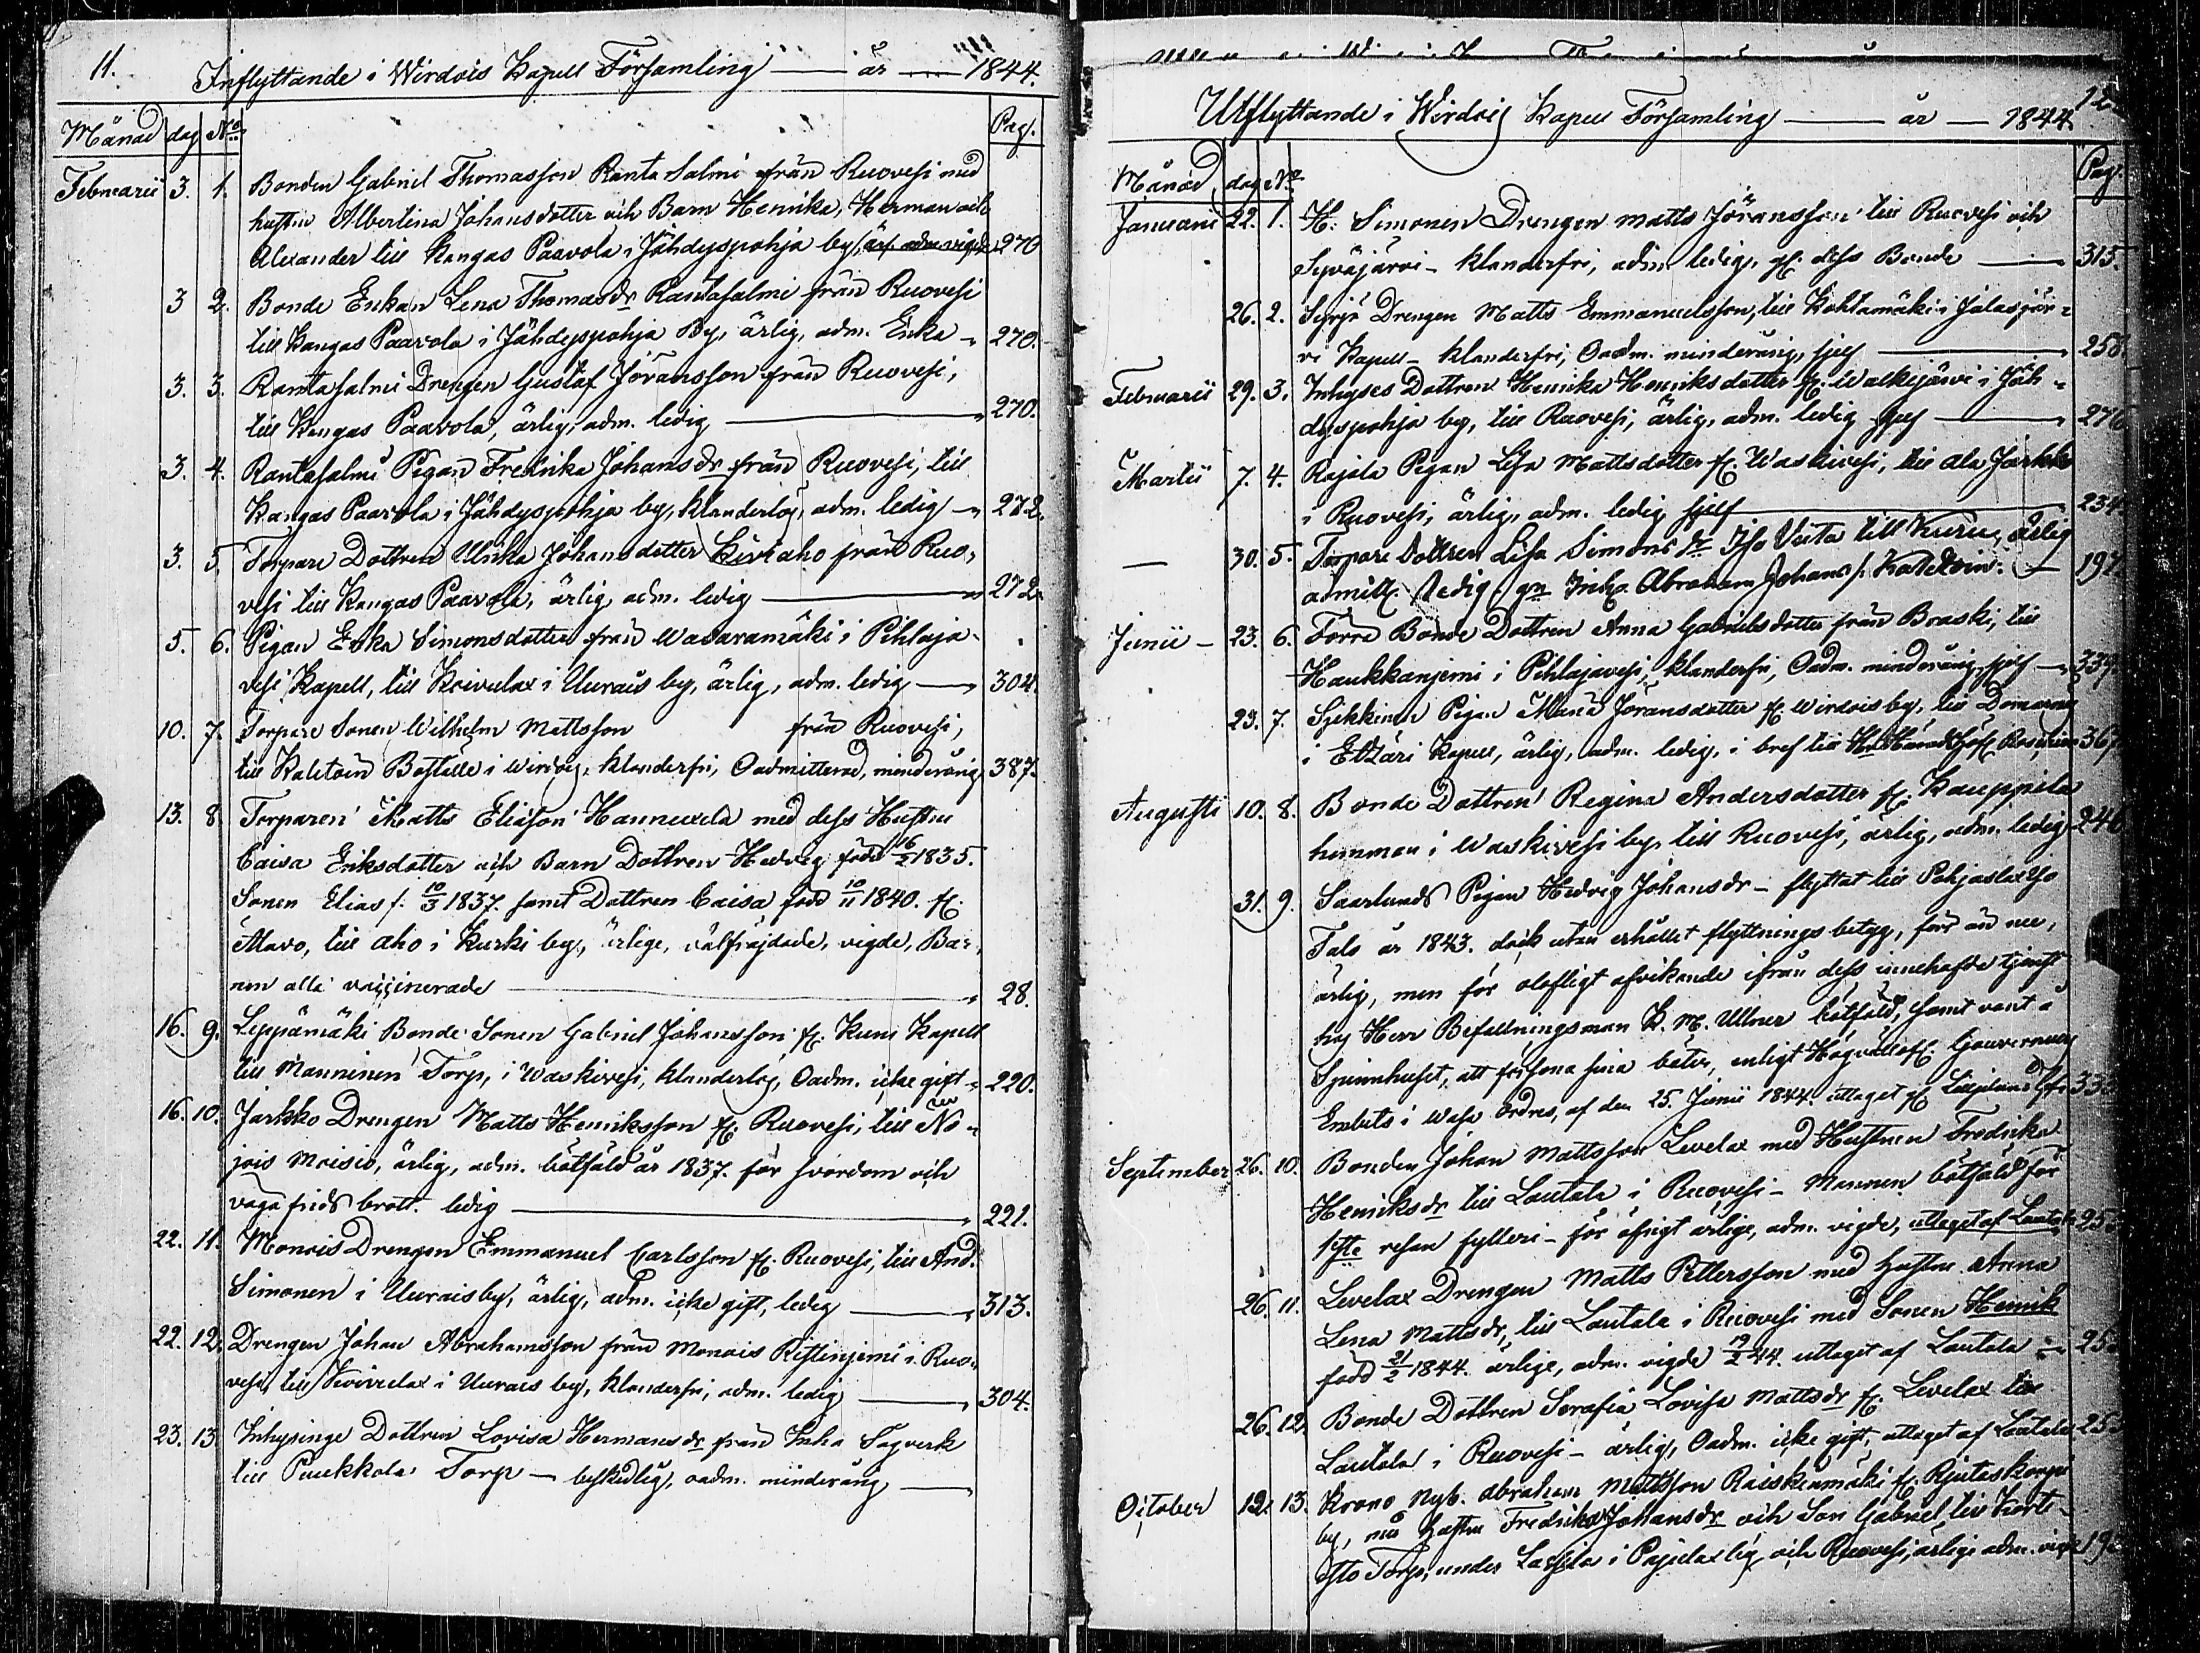 11.
Inflyttande i Wirdois Kapell Församling — år — 1844.
Månad dag No Pag.
Februarii 3. 1. Bonden Gabriel Thomasson Ranta Salmi från Ruovesi med
hustru Albertina Johansdotter och Barn Henrika, Herman och
Alexander till Kangas Paavola i Jähdyspohja by, ärl. adm. vigde 270
3 2. Bonde Enkan Lena Thomasdr Rantasalmi från Ruovesi
till Kangas Paavola i Jähdyspohja By, ärlig, adm. Enka — 270.
3. 3. Rantasalmi Drengen Gustaf Jöransson från Ruovesi,
till Kangas Paavola, ärlig, adm. ledig — 270.
3. 4. Rantasalmi Pigan Fredrika Johansdr från Ruovesi, till
Kangas Paavola i Jähdyspohja by, klanderlös, adm. ledig — 272.
3. 5. Torpare Dottren Ulrika Johansdotter Kiviaho från Ruo-
vesi till Kangas Paavola, ärlig, adm. ledig — 272.
5. 6. Pigan Erika Simonsdotter från Wasaramäki i Pihlaja-
vesi Kapell, till Koivulax i Uurais by, ärlig, adm. ledig — 304.
10. 7. Torpare Sonen Wilhelm Mattsson från Ruovesi,
till Kaletoin Boställe i Wirdois, klanderfri, Oadmitterad, minderårig 387.
13. 8 Torparen Matts Eliason Hannuxela med dess Hustru
Caisa Eriksdotter och Barn Dottren Hedvig född 16/2 1835.
Sonen Elias f. 10/3 1837. samt Dottren Caisa född 10/11 1840. fr.
Alavo, till Aho i Kurki by, ärlige, välfräjdade, vigde, Bar-
nen alla vaccinerade — 28.
16. 9. Leppämäki Bonde Sonen Gabriel Johansson fr. Kuru Kapell
till Manninen Torp, i Waskivesi, klanderlös, Oadm. icke gift — 220.
16. 10. Jarkko Drengen Matts Henriksson fr. Ruovesi, till No-
jois Moisio, ärlig, adm. bötfäld år 1837. för hvordom och
vägafrids brott. ledig — 221.
22. 11. Monois Drengen Emmanuel Carlsson fr. Ruovesi, till And.
Simonen i Uurais by, ärlig, adm. icke gift, ledig — 313.
22. 12. Drengen Johan Abrahamsson från Monois Ristinjemi i Ruo-
vesi, till Koivulax i Uurais by, klanderfri, adm. ledig — 304.
23. 13. Inhysinge Dottren Lovisa Hermansdr från Inha Sågverk
till Puukkola Torp — beskedlig, oadm. minderårig —
12
Utflyttande i Wirdois Kapell Församling — år — 1844.
Månad dag No Pag.
Januarii 22. 1. H. Simonen Drengen Matts Jöransson till Ruovesi och
Syväjärvi — klanderfri, adm. ledig, gm dess Bonde — 315.
26. 2. Syrjä Drengen Matts Emmanuelsson, till Kohtamäki i Jalasjär-
vi Kapell — klanderfri, Oadm. minderårig, sjelf — 258
Februarii 29. 3. Inhyses Dottren Henrika Henriksdotter fr. Walkejärvi i Jäh-
dyspohja by, till Ruovesi, ärlig, adm. ledig sjelf — 276
Martii 7. 4. Rajala Pigan Lisa Mattsdotter fr. Waskivesi, till Ala Jarkko
i Ruovesi, ärlig, adm. ledig sjelf — 234
— 30. 5. Torpare Dottren Lisa Simons dr Iso Uuta till Kuru, ärlig
admitt. ledig gm Inh. Abraham Johans s. Kaletoin. — 197
Junii — 23. 6. Förra Bonde Dottren Anna Gabrielsdotter från Braski, till
Haukkanjemi i Pihlajavesi, klanderfri, Oadm. minderårig, sjelf — 339
23. 7. Sjekkinen Pigan Maria Jöransdotter fr. Wirdois by, till Domarns
i Etzäri Kapell, ärlig, adm. ledig, i bref till 367
Augusti 10. 8. Bonde Dottren Regina Andersdotter fr. Kauppila
hemman i Waskivesi by, till Ruovesi, ärlig, adm. ledig 246
31. 9. Saarlunds Pigan Hedvig Johansdr — flyttat till Pohjaslax
Talo år 1843. dock utan erhållet flyttnings betyg, för än nu,
ärlig, men för olofligt afvikande ifrån dess innehafde tjenst
hos Herr Befallningsman K. M. Ullner bötfäld, samt varit å
Spinnhuset, att försona sina böter, enligt Högvällofl. Gouverneurs
Embets i Wasa Ordres, af den 25. Junii 1844. uttaget gm 333
September 26. 10. Bonden Johan Mattsson Levelax med Hustrun Fredrika
Henriksdr till Lautala i Ruovesi — Mannen bötfäld för
1sta resan fylleri — för öfrigt ärlige, adm. vigde, uttaget af Lautala 253
26. 11. Levelax Drengen Matts Pettersson med hustru Anna
Lena Mattsdr, till Lautala i Ruovesi med Sonen Henrik
född 21/2 1844. ärlige, adm. vigde 19/2 44. uttaget af Lautala — 253
26. 12. Bonde Dottren Serafia Lovisa Mattsdr fr. Levelax till
Lautala i Ruovesi — ärlig, Oadm. icke gift, uttaget af Lautala 253
October 12. 13. Krono Nyb. Abraham Mattsson Raiskinmäki fr. Rjutaskorpi
by, med hustru Fredrika Johansdr och Son Gabriel, till Korte-
sto Torp, under Lassila i Pajulax by och Ruovesi, ärlige adm. vigde 19